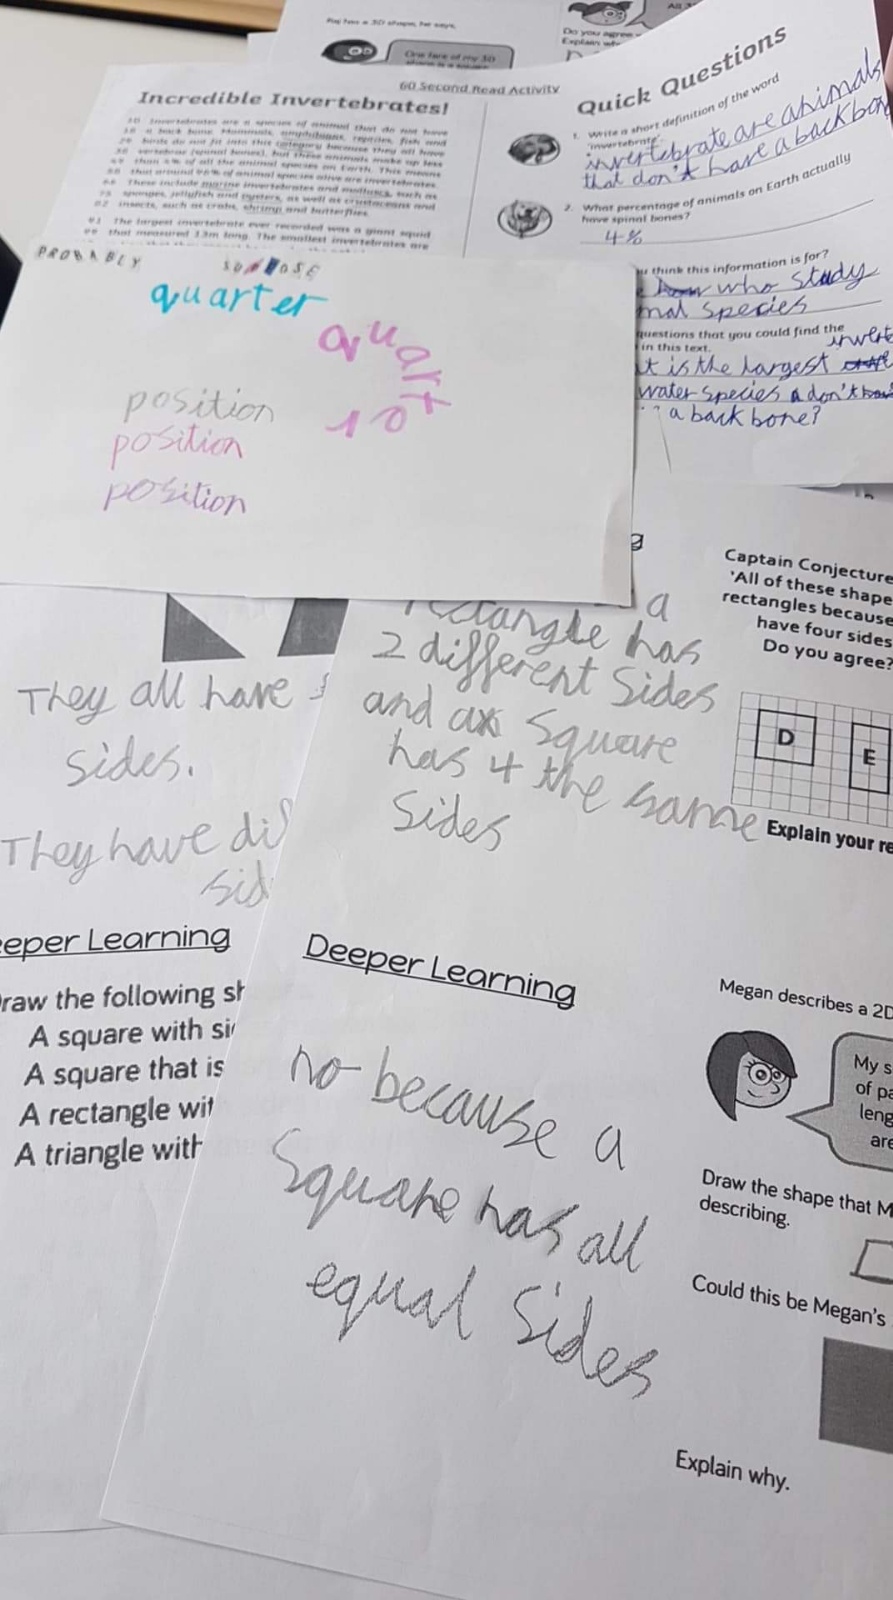 Ray has a 3D shape, he says,
One face of my 3D
shape is a square
All 3
Do you agree
Explain why
60 Second Read Activity
Incredible Invertebrates!
10 Invertebrates are a species of animal that do not have
18 a back bone. Mammals, amphibians, reptiles, fish and
29 birds do not fit into this category because they all have
38 vertebrae (spinal bones), but these animals make up less
49 than 4% of all the animal species on Earth. This means
58 that around 96% of animal species alive are invertebrates.
66 These include marine invertebrates and molluscs, such as
75 sponges, jellyfish and oysters, as well as crustaceans and
82 insects, such as crabs, shrimp and butterflies.
91 The largest invertebrate ever recorded was a giant squid
99 that measured 13m long. The smallest invertebrates are
Quick Questions
1. Write a short definition of the word
'invertebrate'.
invertebrate are animals
that don't have a backbone
2. What percentage of animals on Earth actually
have spinal bones?
4%
u think this information is for?
who study
mal species
questions that you could find the
in this text.
invert
t is the largest
water species a don't
a back bone?
PROBABLY
quarter
quarter
position
position
position
They all have
sides.
They have dif
sid
eper Learning
raw the following sh
A square with si
A square that is
A rectangle wit
A triangle with
g
a
rectangle has
2 different sides
and a square
has 4 the same
sides
Captain Conjecture
'All of these shape
rectangles because
have four sides
Do you agree?
D
E
Explain your re
Deeper Learning
no because a
square has all
equal sides
Megan describes a 2D
My s
of pa
leng
are
Draw the shape that M
describing.
Could this be Megan's
Explain why.